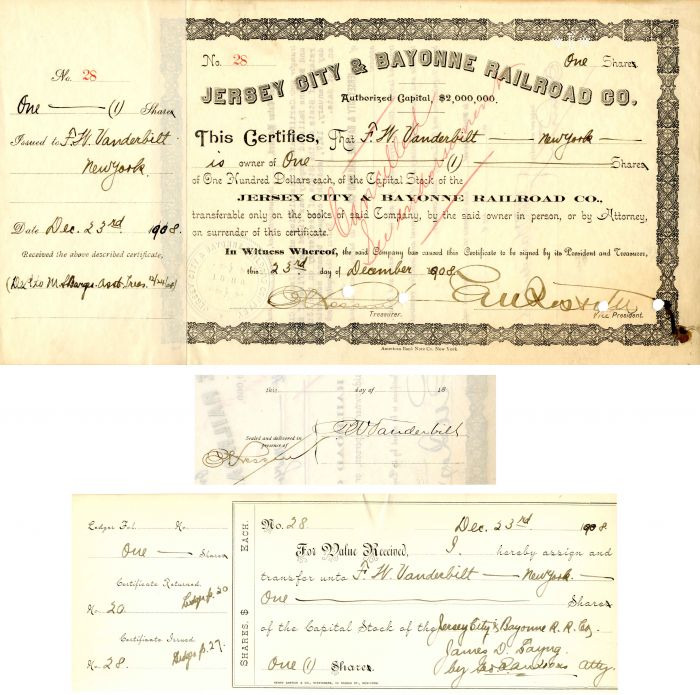 No. 28
One (1) Shares
Issued to F. W. Vanderbilt
New York.
Date Dec. 23rd 1908.
Received the above described certificate,
No. 28
One Shares
JERSEY CITY & BAYONNE RAILROAD CO.
Authorized Capital, $2,000,000.
This Certifies, That F. W. Vanderbilt New York
is owner of One (1) Shares
of One Hundred Dollars each, of the Capital Stock of the
JERSEY CITY & BAYONNE RAILROAD CO.,
transferable only on the books of said Company, by the said owner in person, or by Attorney,
on surrender of this certificate.
In Witness Whereof, the said Company has caused this Certificate to be signed by its President and Treasurer,
this 23rd day of December 1908.
Treasurer.
Vice President.
American Bank Note Co. New York.
Cancelled
this day of 18
Sealed and delivered in
presence of
F W Vanderbilt
Ledger Fol. No.
One Shares
Certificate Returned.
No 20 Ledger p. 20
Certificate Issued
No 28. Ledger p. 27.
SHARES, $ EACH.
No. 28 Dec. 23rd 1908
For Value Received, I hereby assign and
transfer unto F. W. Vanderbilt New York
One Shares
of the Capital Stock of the Jersey City & Bayonne R. R. Co.
James D. Layng
One (1) Shares. by atty.